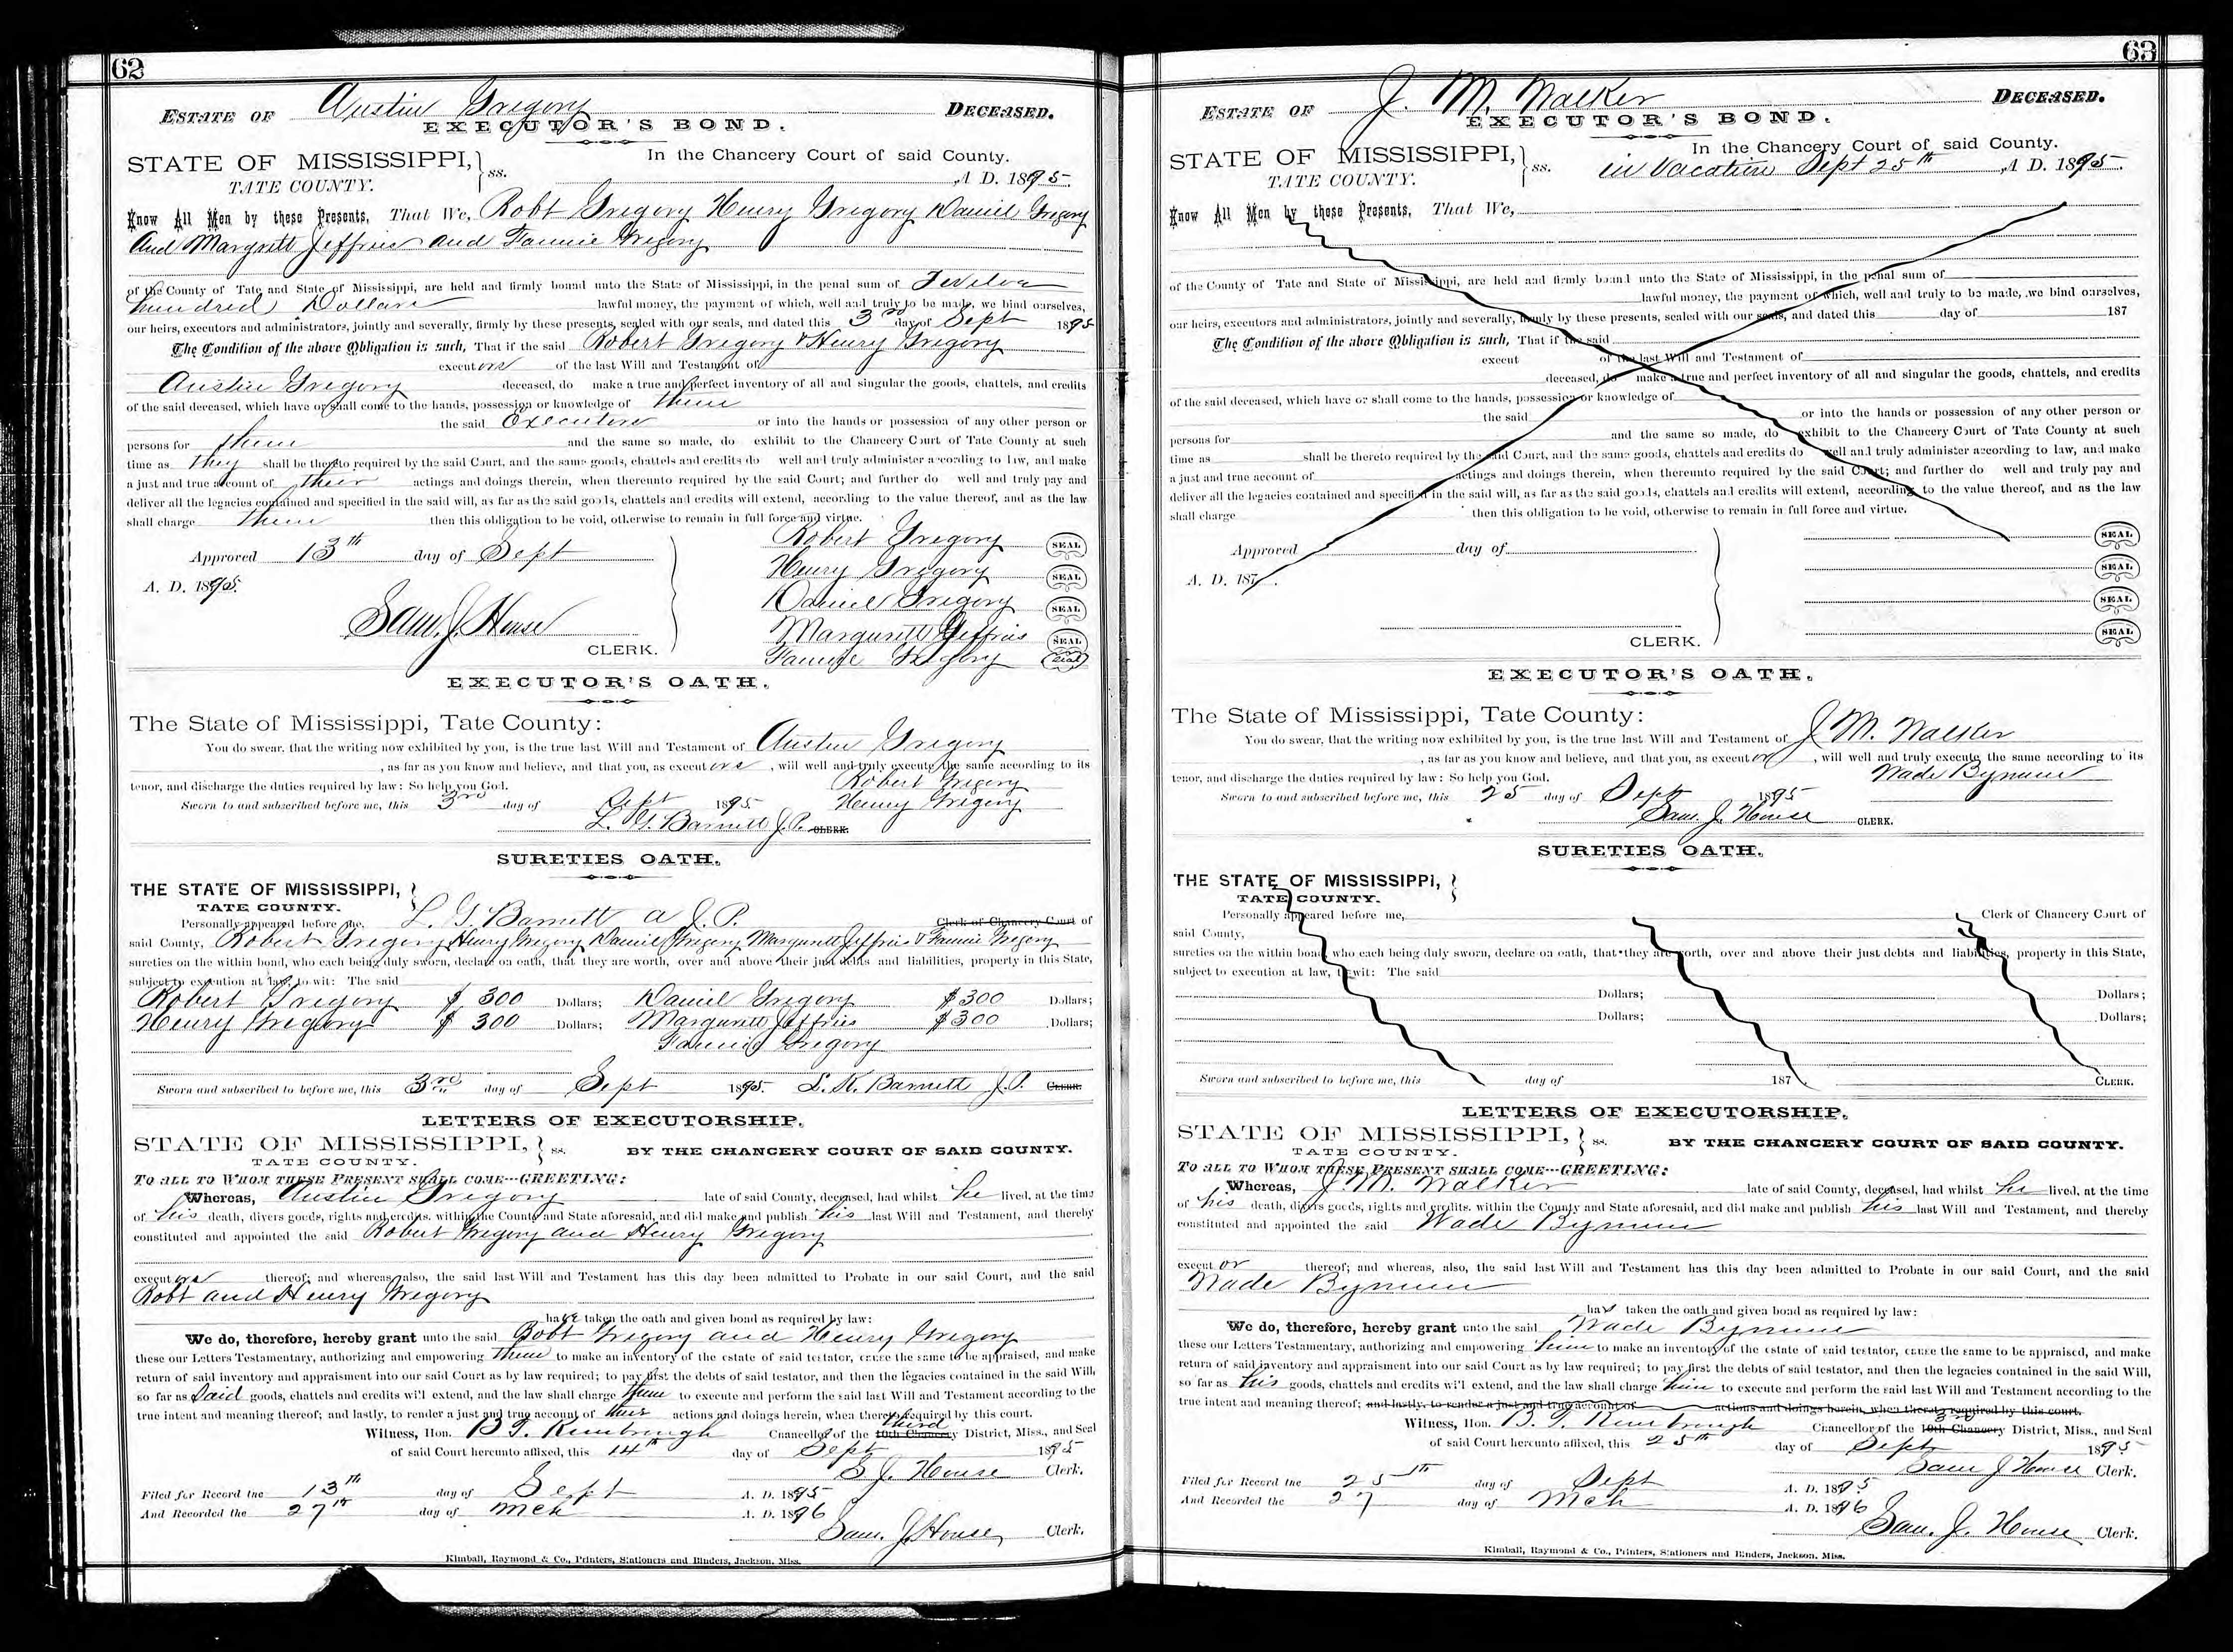 62
ESTATE OF Austin Gregory DECEASED.
EXECUTOR'S BOND.
STATE OF MISSISSIPPI, } ss. In the Chancery Court of said County.
TATE COUNTY. A D. 1895.
Know All Men by these Presents, That We, Robt Gregory Henry Gregory Daniel Gregory
And Margrett Jeffries and Fannie Gregory
of the County of Tate and State of Mississippi, are held and firmly bound unto the State of Mississippi, in the penal sum of Twelve
hundred Dollars lawful money, the payment of which, well and truly to be made, we bind ourselves,
our heirs, executors and administrators, jointly and severally, firmly by these presents, sealed with our seals, and dated this 3rd day of Sept 1895
The Condition of the above Obligation is such, That if the said Robert Gregory & Henry Gregory
executors of the last Will and Testament of
Austin Gregory deceased, do make a true and perfect inventory of all and singular the goods, chattels, and credits
of the said deceased, which have or shall come to the hands, possession or knowledge of them
the said Executors or into the hands or possession of any other person or
persons for them and the same so made, do exhibit to the Chancery Court of Tate County at such
time as they shall be thereto required by the said Court, and the same goods, chattels and credits do well and truly administer according to law, and make
a just and true account of their actings and doings therein, when thereunto required by the said Court; and further do well and truly pay and
deliver all the legacies contained and specified in the said will, as far as the said goods, chattels and credits will extend, according to the value thereof, and as the law
shall charge them then this obligation to be void, otherwise to remain in full force and virtue.
Approved 13th day of Sept
A. D. 1895.
Sam. J. House
CLERK.
Robert Gregory SEAL
Henry Gregory SEAL
Daniel Gregory SEAL
Margurett Jeffries SEAL
Fannie Gregory Seal
EXECUTOR'S OATH.
The State of Mississippi, Tate County:
You do swear, that the writing now exhibited by you, is the true last Will and Testament of Austin Gregory
, as far as you know and believe, and that you, as executors , will well and truly execute the same according to its
tenor, and discharge the duties required by law: So help you God. Robert Gregory
Sworn to and subscribed before me, this 3rd day of Sept 1895 Henry Gregory
L. G. Barnett J.P. CLERK.
SURETIES OATH.
THE STATE OF MISSISSIPPI, }
TATE COUNTY.
Personally appeared before me, L. G. Barnett a J. P. Clerk of Chancery Court of
said County, Robert Gregory, Henry Gregory, Daniel Gregory Margurett Jeffries & Fannie Gregory
sureties on the within bond, who each being duly sworn, declare on oath, that they are worth, over and above their just debts and liabilities, property in this State,
subject to execution at law, to wit: The said
Robert Gregory $ 300 Dollars; Daniel Gregory $300 Dollars;
Henry Gregory $ 300 Dollars; Margurett Jeffries $300 Dollars;
Fannie Gregory
Sworn and subscribed to before me, this 3rd day of Sept 1895. Barnett J.P. CLERK.
LETTERS OF EXECUTORSHIP.
STATE OF MISSISSIPPI, } ss. BY THE CHANCERY COURT OF SAID COUNTY.
TATE COUNTY.
TO ALL TO WHOM THESE PRESENT SHALL COME---GREETING:
Whereas, Austin Gregory late of said County, deceased, had whilst he lived, at the time
of his death, divers goods, rights and credits, within the County and State aforesaid, and did make and publish his last Will and Testament, and thereby
constituted and appointed the said Robert Gregory and Henry Gregory
executors thereof; and whereas, also, the said last Will and Testament has this day been admitted to Probate in our said Court, and the said
Robt and Henry Gregory
have taken the oath and given bond as required by law:
We do, therefore, hereby grant unto the said Robt Gregory and Henry Gregory
these our Letters Testamentary, authorizing and empowering them to make an inventory of the estate of said testator, cause the same to be appraised, and make
return of said inventory and appraisment into our said Court as by law required; to pay first the debts of said testator, and then the legacies contained in the said Will,
so far as Said goods, chattels and credits will extend, and the law shall charge them to execute and perform the said last Will and Testament according to the
true intent and meaning thereof; and lastly, to render a just and true account of their actions and doings herein, when thereto required by this court.
Witness, Hon. B. T. Kimbrough Chancellor of the 10th Chancery third District, Miss., and Seal
of said Court hereunto affixed, this 14th day of Sept 1895
S J. House Clerk.
Filed for Record the 13th day of Sept A. D. 1895
And Recorded the 27th day of Mch A. D. 1896
Sam. J. House Clerk.
Kimball, Raymond & Co., Printers, Stationers and Binders, Jackson, Miss.
63
ESTATE OF J. M. Walker DECEASED.
EXECUTOR'S BOND.
STATE OF MISSISSIPPI, } ss. In the Chancery Court of said County.
TATE COUNTY. in Vacation Sept 25th A D. 1895.
Know All Men by these Presents, That We,
of the County of Tate and State of Mississippi, are held and firmly bound unto the State of Mississippi, in the penal sum of
lawful money, the payment of which, well and truly to be made, we bind ourselves,
our heirs, executors and administrators, jointly and severally, firmly by these presents, sealed with our seals, and dated this day of 187
The Condition of the above Obligation is such, That if the said
execut of the last Will and Testament of
deceased, do make a true and perfect inventory of all and singular the goods, chattels, and credits
of the said deceased, which have or shall come to the hands, possession or knowledge of
the said or into the hands or possession of any other person or
persons for and the same so made, do exhibit to the Chancery Court of Tate County at such
time as shall be thereto required by the said Court, and the same goods, chattels and credits do well and truly administer according to law, and make
a just and true account of actings and doings therein, when thereunto required by the said Court; and further do well and truly pay and
deliver all the legacies contained and specified in the said will, as far as the said goods, chattels and credits will extend, according to the value thereof, and as the law
shall charge then this obligation to be void, otherwise to remain in full force and virtue.
Approved day of
A. D. 187 .
CLERK.
SEAL
SEAL
SEAL
SEAL
EXECUTOR'S OATH.
The State of Mississippi, Tate County:
You do swear, that the writing now exhibited by you, is the true last Will and Testament of J. M. Walker
, as far as you know and believe, and that you, as executor , will well and truly execute the same according to its
tenor, and discharge the duties required by law: So help you God. Wade Bynum
Sworn to and subscribed before me, this 25 day of Sept 1895
Sam. J. House CLERK.
SURETIES OATH.
THE STATE OF MISSISSIPPI, }
TATE COUNTY.
Personally appeared before me, Clerk of Chancery Court of
said County,
sureties on the within bond, who each being duly sworn, declare on oath, that they are worth, over and above their just debts and liabilities, property in this State,
subject to execution at law, to wit: The said
Dollars; Dollars;
Dollars; Dollars;
Sworn and subscribed to before me, this day of 187 CLERK.
LETTERS OF EXECUTORSHIP.
STATE OF MISSISSIPPI, } ss. BY THE CHANCERY COURT OF SAID COUNTY.
TATE COUNTY.
TO ALL TO WHOM THESE PRESENT SHALL COME---GREETING:
Whereas, J. M. Walker late of said County, deceased, had whilst he lived, at the time
of his death, divers goods, rights and credits, within the County and State aforesaid, and did make and publish his last Will and Testament, and thereby
constituted and appointed the said Wade Bynum
executor thereof; and whereas, also, the said last Will and Testament has this day been admitted to Probate in our said Court, and the said
Wade Bynum
has taken the oath and given bond as required by law:
We do, therefore, hereby grant unto the said Wade Bynum
these our Letters Testamentary, authorizing and empowering him to make an inventory of the estate of said testator, cause the same to be appraised, and make
return of said inventory and appraisment into our said Court as by law required; to pay first the debts of said testator, and then the legacies contained in the said Will,
so far as his goods, chattels and credits will extend, and the law shall charge him to execute and perform the said last Will and Testament according to the
true intent and meaning thereof; and lastly, to render a just and true account of actions and doings herein, when thereto required by this court.
Witness, Hon. B. T. Kimbrough Chancellor of the 10th Chancery 3rd District, Miss., and Seal
of said Court hereunto affixed, this 25th day of Sept 1895
Sam J House Clerk.
Filed for Record the 25th day of Sept A. D. 1895
And Recorded the 27 day of Mch A. D. 1896
Sam. J. House Clerk.
Kimball, Raymond & Co., Printers, Stationers and Binders, Jackson, Miss.